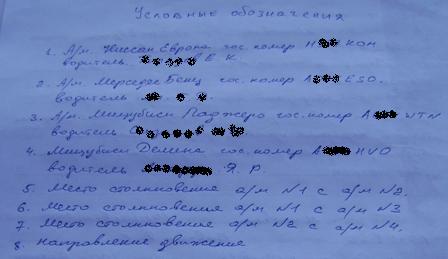 Условные обозначения
1. А/м. Ниссан Европа гос. номер Н КОМ
водитель Е К.
2. А/м. Мерседес Бенц гос. номер А ESO.
водитель
3. А/м. Мицубиси Паджеро гос. номер А WTN
водитель
4. Мицубиси Делика гос. номер А HVO
водитель Я. Р.
5. Место столкновение а/м N1 с а/м N2.
6. Место столкновение а/м N1 с а/м N3
7. Место столкновение а/м N2 с а/м N4.
8. Направление движение